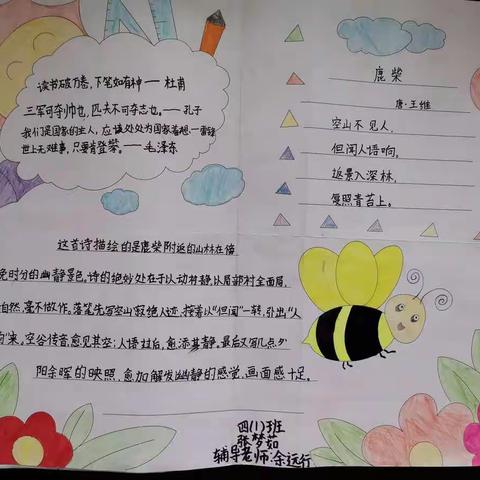 读书破万卷，下笔如有神——杜甫
三军可夺帅也，匹夫不可夺志也。——孔子
我们是国家的主人，应该处处为国家着想。—雷锋
世上无难事，只要肯登攀。——毛泽东
鹿柴
唐·王维
空山不见人，
但闻人语响。
返景入深林，
复照青苔上。
这首诗描绘的是鹿柴附近的山林在傍
晚时分的幽静景色，诗的绝妙处在于以动衬静，以局部衬全面，
自然，毫不做作。落笔先写空山寂绝人迹，接着以"但闻"一转，引出"人
响"来。空谷传音，愈见其空；人语过后，愈添其静。最后又写几点夕
阳余晖的映照，愈加触发幽静的感觉，画面感十足。
四(1)班
张梦茹
辅导老师:余远行